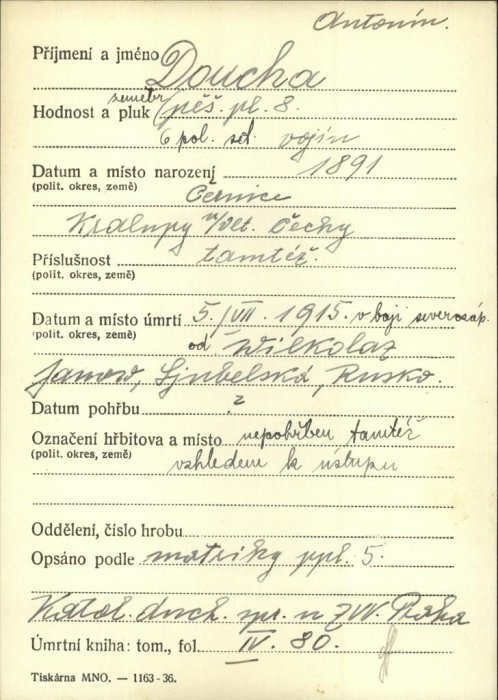 Antonín.
Příjmení a jméno Doucha
zeměbr.
Hodnost a pluk pěš. pl. 8.
6 pol. set. vojín
Datum a místo narození 1891
(polit. okres, země) Černice
Kralupy n/Vlt. Čechy
Příslušnost tamtéž.
(polit. okres, země)
Datum a místo úmrtí 5./VII. 1915. v boji severozáp.
(polit. okres, země) od Wilkolaz
Janow, Ljubelská, Rusko.
Datum pohřbu ?
Označení hřbitova a místo nepohřben tamtéž
(polit. okres, země) vzhledem k ústupu
Oddělení, číslo hrobu
Opsáno podle matriky ppl. 5.
Katol. duch. spr. u ZVV. Praha
Úmrtní kniha: tom., fol. IV. 80.
Tiskárna MNO. — 1163-36.